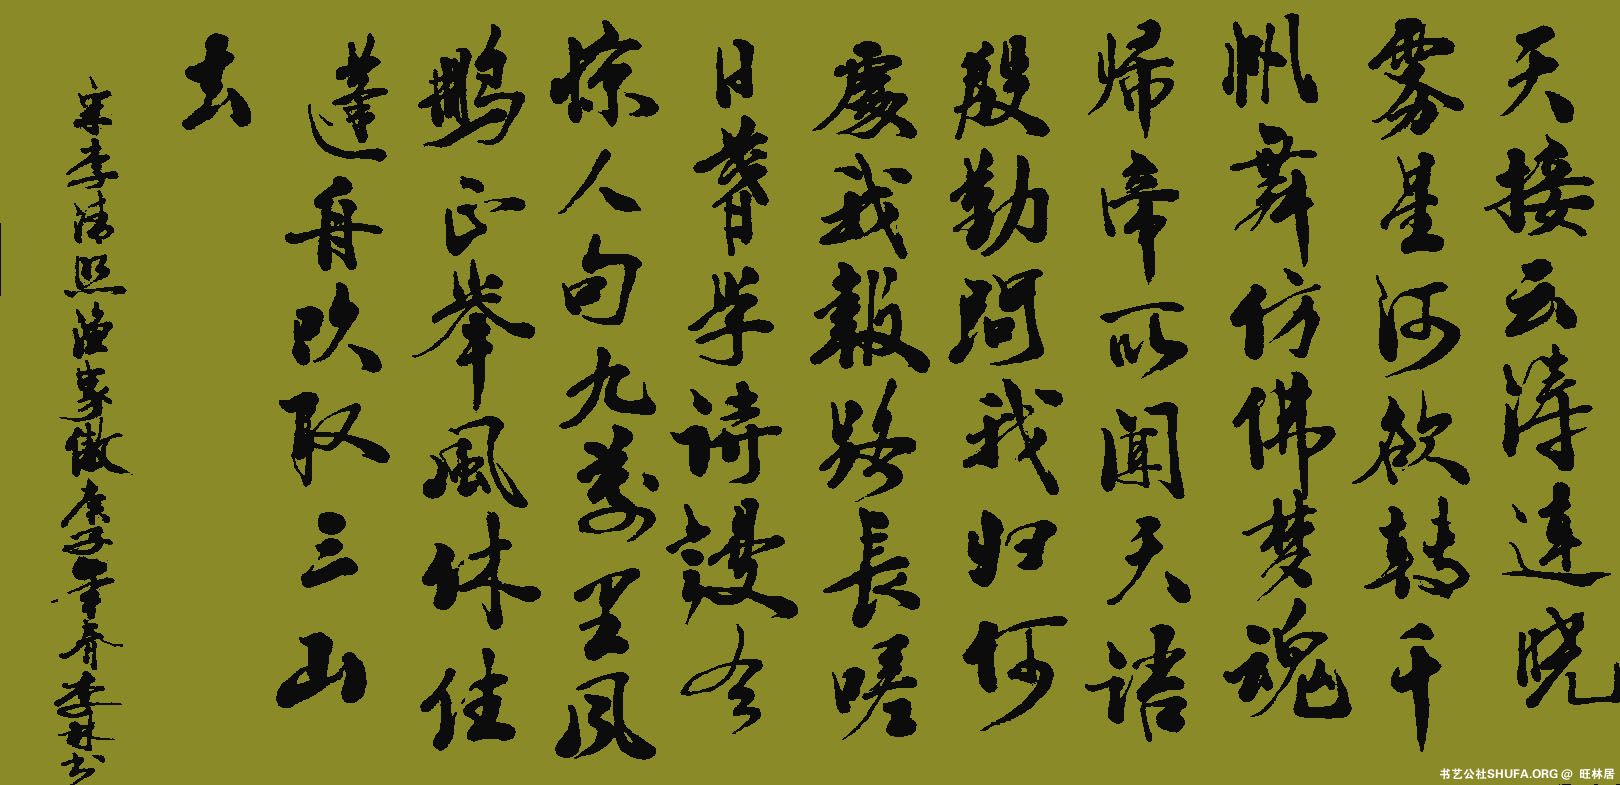 天接云濤連晓
雾星河欲轉千
帆舞仿佛梦魂
帰帝所闻天語
殷勤問我归何
處我報路長嗟
日暮学诗謾有
惊人句九萬里风
鹏正举風休住
蓬舟吹取三山
去
宋李清照漁家傲庚子年春李林书
书艺公社SHUFA.ORG @ 旺林居